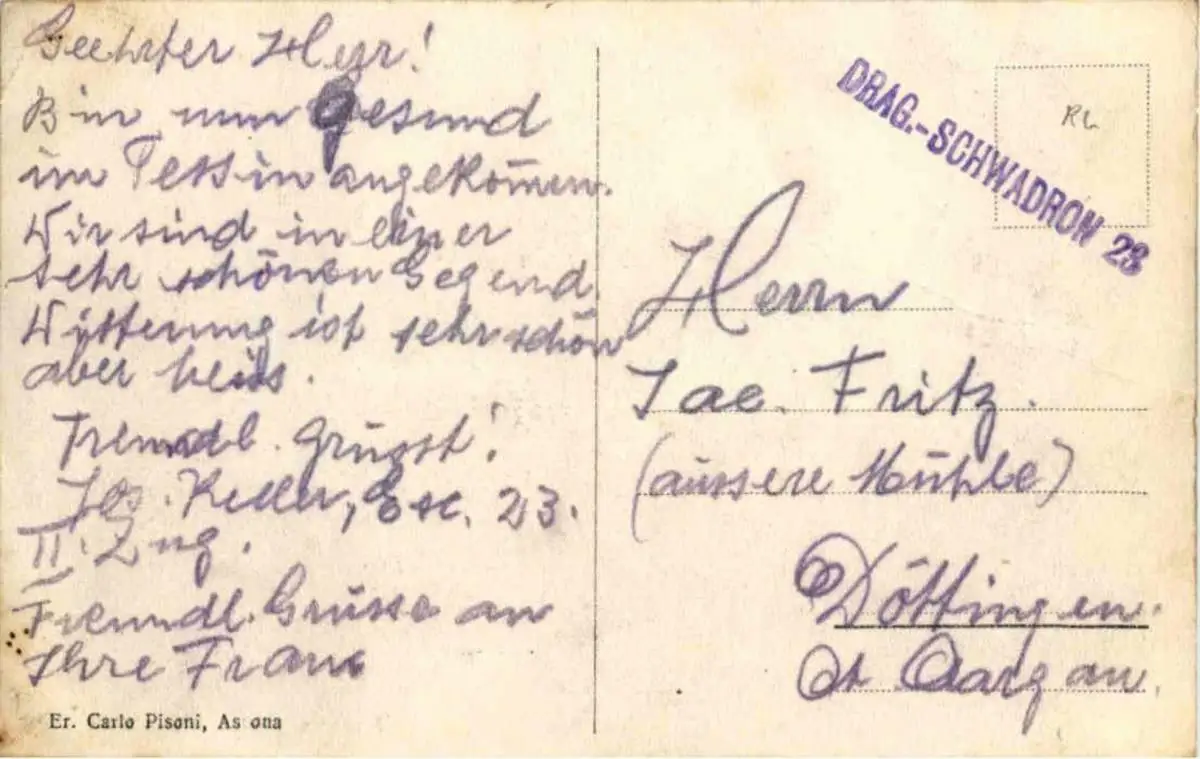 Geehrter Herr!
Bin nun Gesund
im Tessin angekom̄en.
Wir sind in einer
sehr schönen Gegend
Witterung ist sehr schön
aber heiss.
Freundl. Grüsst!
Jos. Keller, Esc. 23.
II. Zug.
Freundl. Grüsse an
Ihre Frau
Er. Carlo Pisoni, As ona
DRAG.-SCHWADRON 23
RL
Herrn
Jac. Fritz.
(äussere Mühle)
Döttingen.
Ct Aargau.